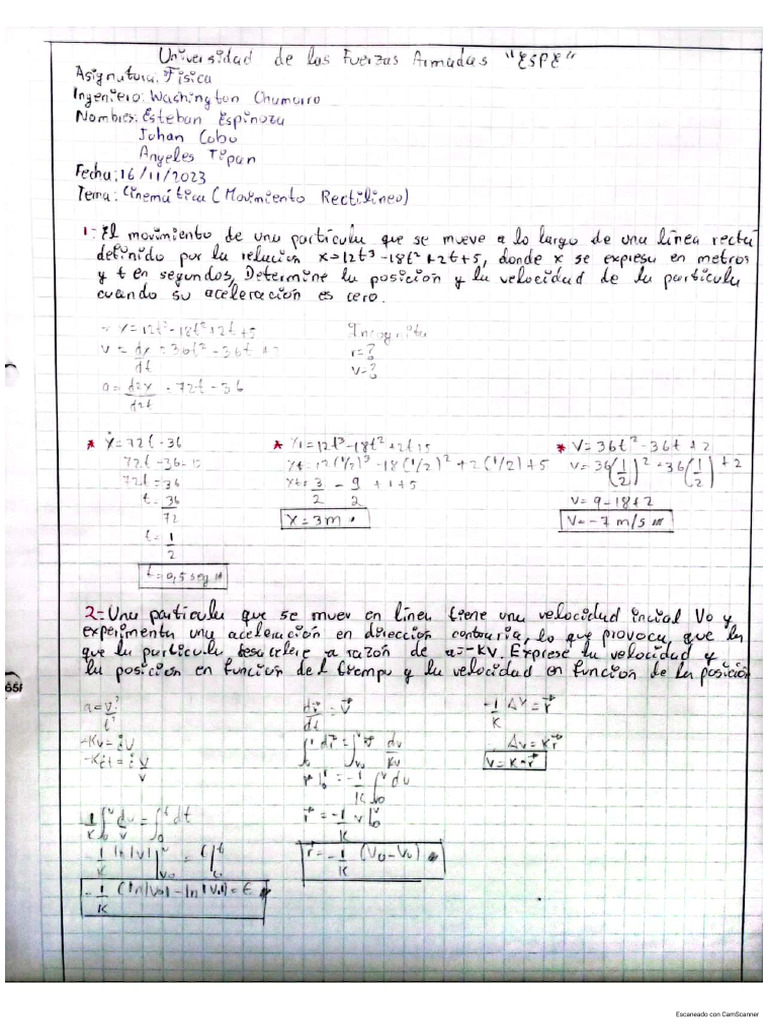 Universidad de las Fuerzas Armadas "ESPE"
Asignatura: Física
Ingeniero: Washington Chamorro
Nombres: Esteban Espinoza
Johan Cobo
Angeles Tipan
Fecha: 16/11/2023
Tema: Cinemática (Movimiento Rectilineo)
1.- El movimiento de una particula que se mueve a lo largo de una línea recta
definido por la relacion x=12t³-18t²+2t+5, donde x se expresa en metros
y t en segundos, Determine la posicion y la velocidad de la particula
cuando su aceleracion es cero.
x=12t³-18t²+2t+5 Incognita
v = dx/dt = 36t²-36t+2 r=?
v=?
a = d2x/d2t = 72t-36
* ẍ=72t-36 * xt=12t³-18t²+2t+5 * v=36t²-36t+2
72t-36=0 xt=12(1/2)³-18(1/2)²+2(1/2)+5 v=36(1/2)²-36(1/2)+2
72t=36 xt=3/2 - 9/2 +1+5 v=9-18+2
t=36/72 x=3m v=-7 m/s
t=1/2
t=0,5 seg
2.- Una particula que se muev en línea tiene una velocidad incial Vo y
experimenta una aceleracion en direccion contraria, lo que provoca, que la
que la particula desacelere a razon de a=-kv. Exprese la velocidad y
la posicion en funcion del tiempo y la velocidad en funcion de la posición
dr/dt = v -1/k Δv = r
Δv = kr
v=k·r
r = -1/k v
-1/k ln|v|
65
Escaneado con CamScanner